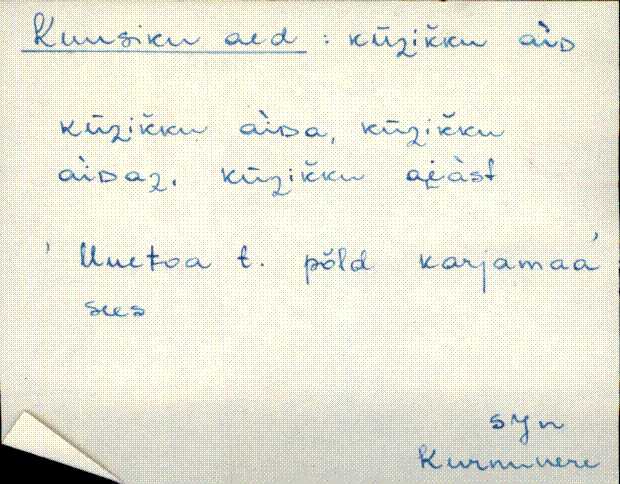 Kuusiku aed : kūzikku aìᴅ
kūzikku aìᴅa, kūzikku
aìᴅaz, kūzikku
' Uuetoa t. põld karjamaa '
sees
syn
Kurmuere